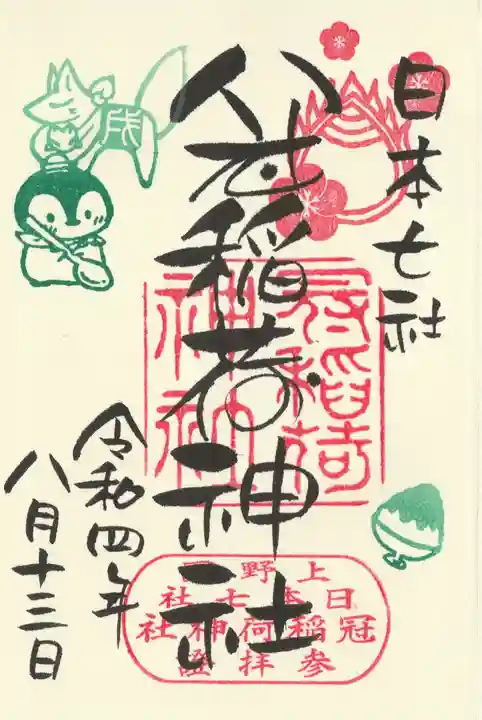 日本七社
冠稲荷神社
冠稲荷
神社
上野国
日本七社
冠稲荷神社
参拝證
令和四年
八月十三日